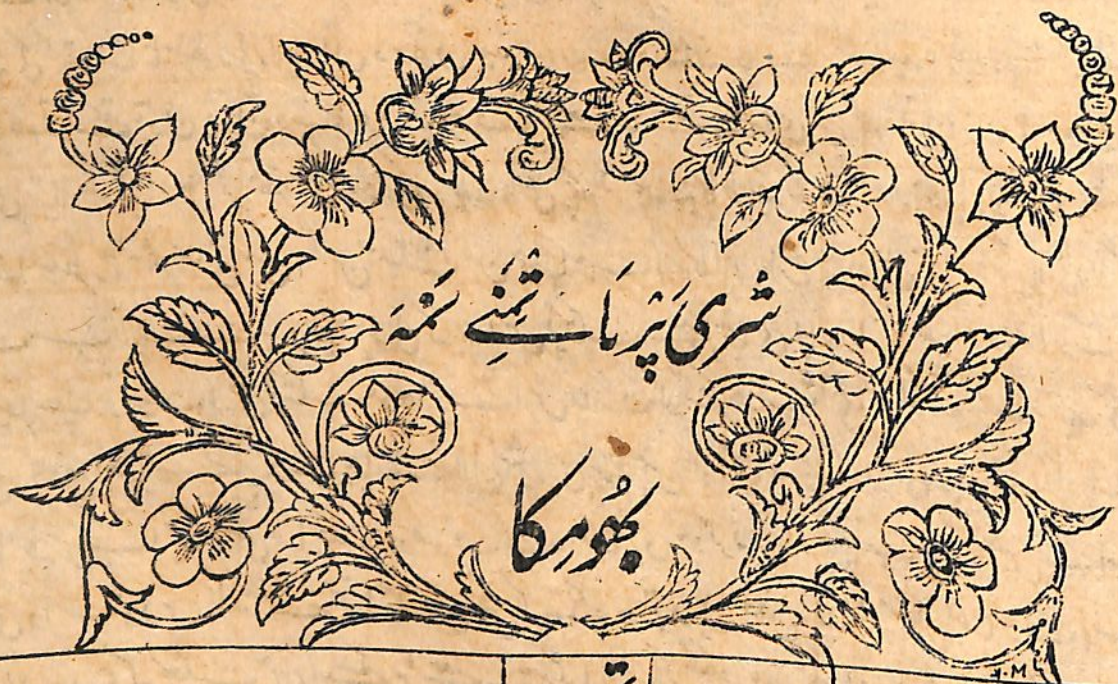 شری پَرماتمنے نَمَہ
بھُومِکا